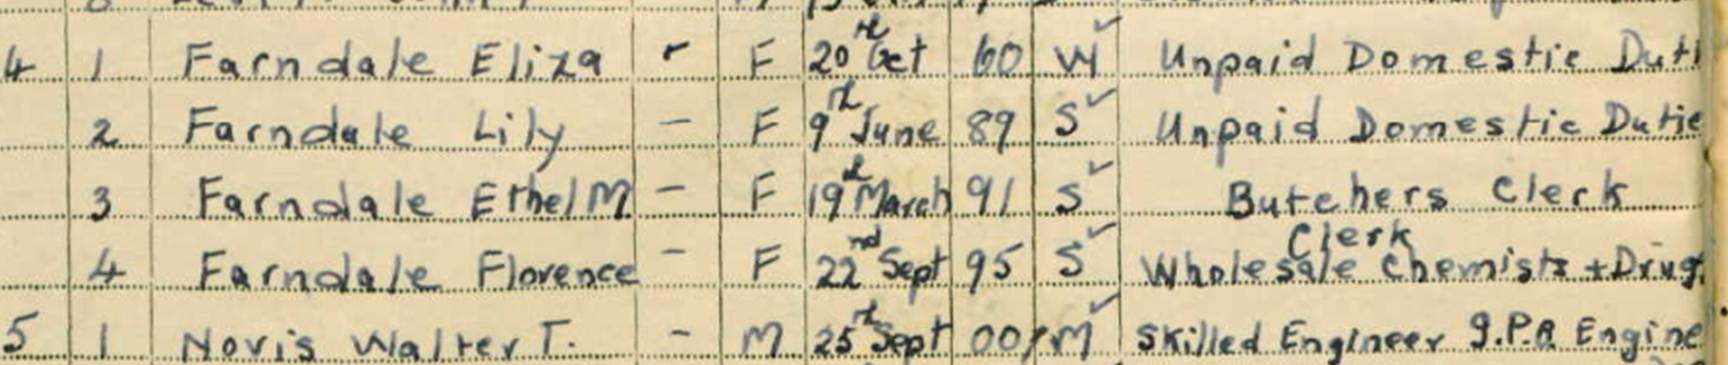 4 1 Farndale Eliza - F 20th Oct 60 W ✓ Unpaid Domestic Duti
2 Farndale Lily - F 9th June 89 S ✓ Unpaid Domestic Dutie
3 Farndale Ethel M - F 19th March 91 S ✓ Butchers Clerk
Clerk
4 Farndale Florence - F 22nd Sept 95 S ✓ Wholesale Chemists + Drug
5 1 Novis Walter T. - M 25th Sept 00 M ✓ Skilled Engineer G.P.O. Engine